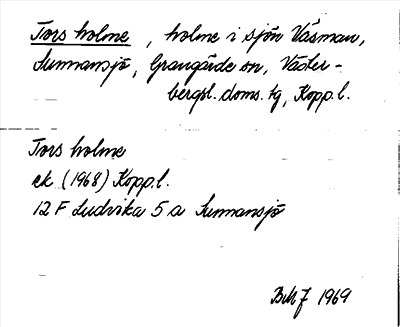 Tors holme, holme i sjön Väsman,
Sunnansjö, Grangärde sn, Väster-
bergsl. doms. tg, Kopp. l.
Tors holme
ek (1968) Kopp. l.
12 F Ludvika 5 a Sunnansjö
1969